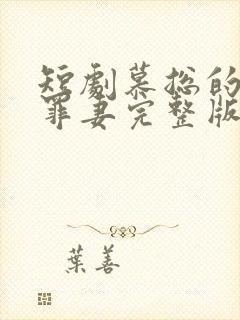 短劇慕總的
罪妻完整版
葉善